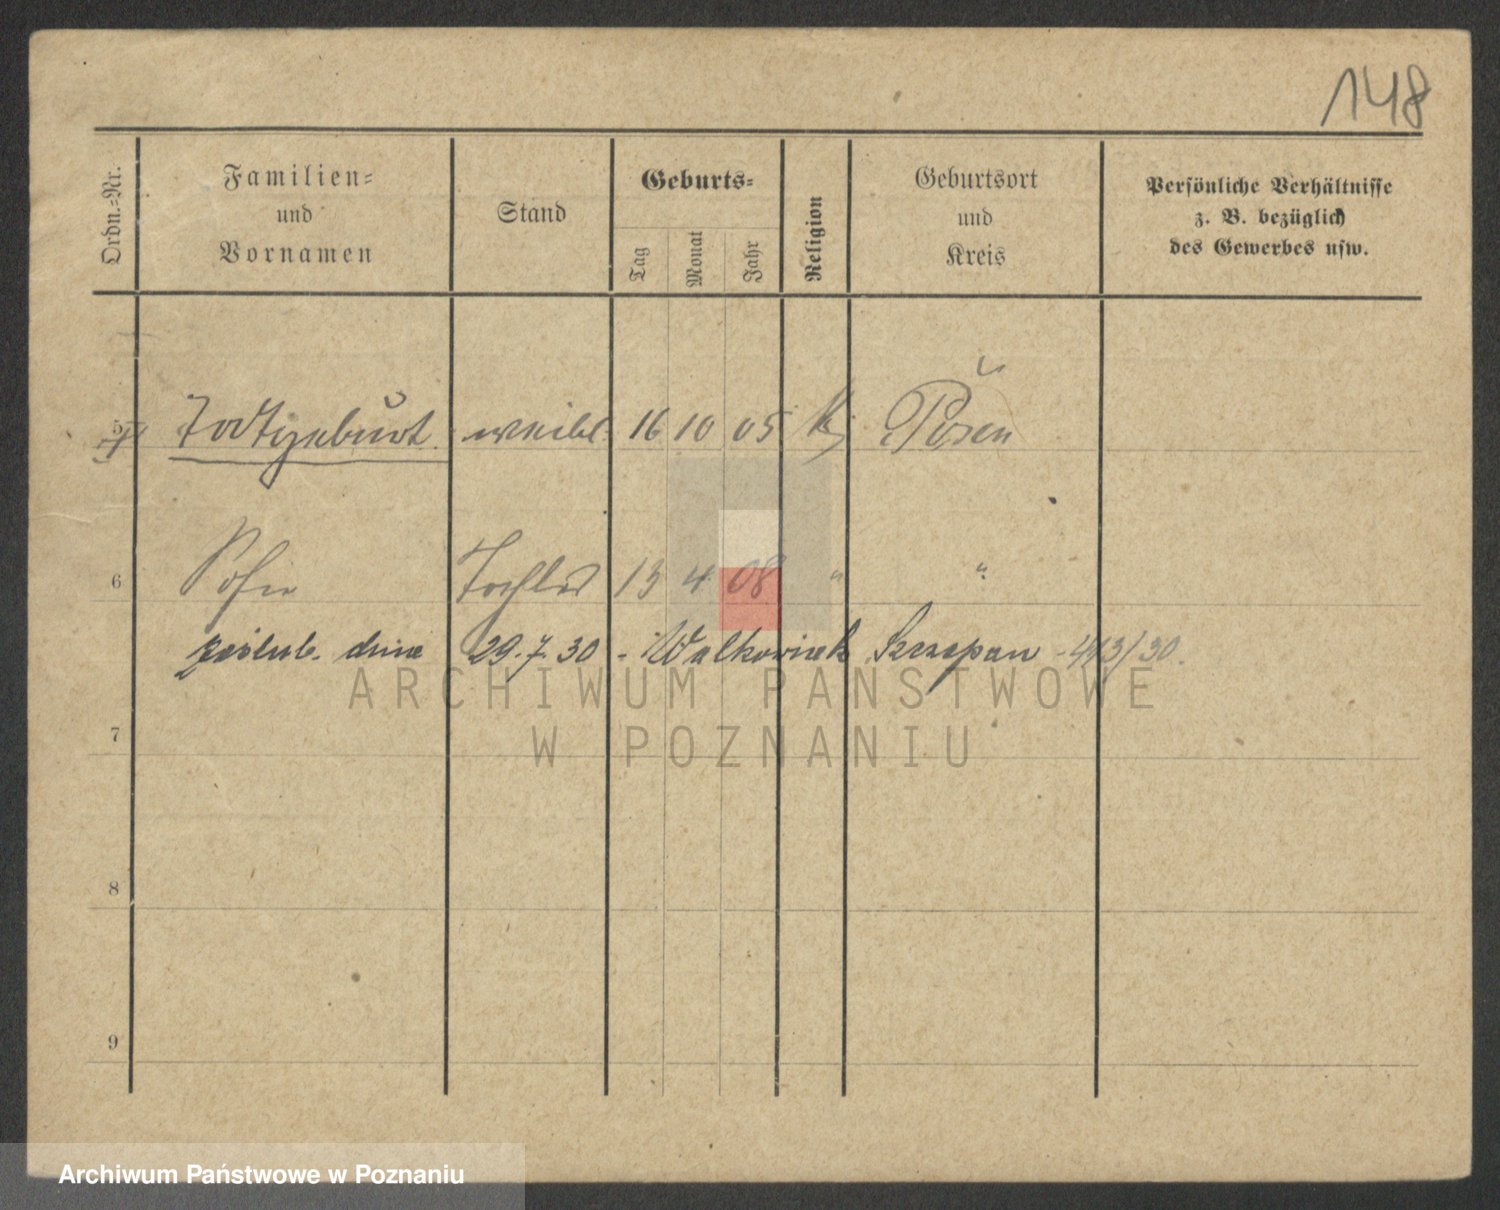 148
Ordn.=Nr.
Familien=
und
Vornamen
Stand
Geburts=
Tag
Monat
Jahr
Religion
Geburtsort
und
Kreis
Persönliche Verhältnisse
z. B. bezüglich
des Gewerbes usw.
5 Todtgeburt weibl. 16 10 05 K Posen
6 Sofie Tochter 13 4 08 " "
dnia 29.7.30 - Walkowiak Szczepan - 413/30.
7
8
9
ARCHIWUM PAŃSTWOWE
W POZNANIU
Archiwum Państwowe w Poznaniu